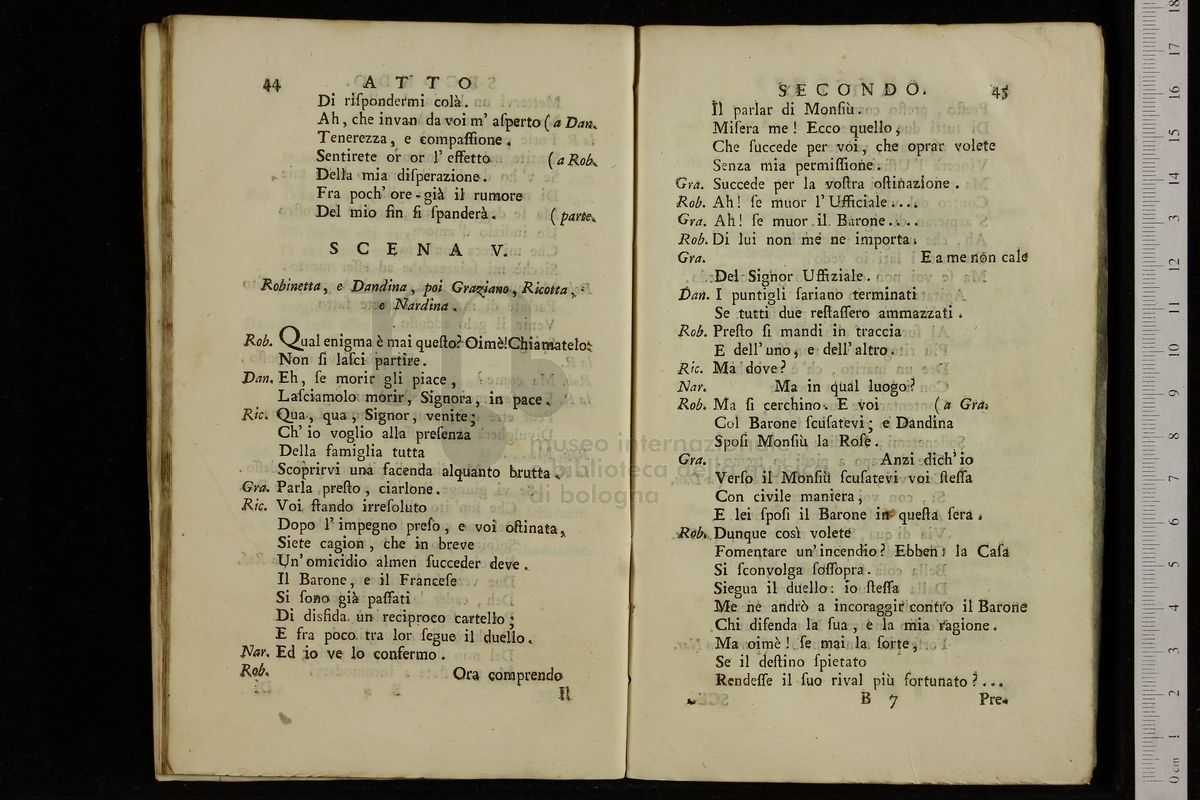 44 ATTO
Di riſpondermi colà.
Ah, che invan da voi m' aſperto (a Dan.
Tenerezza, e compaſſione.
Sentirete or or l' effetto (a Rob.
Della mia diſperazione.
Fra poch' ore già il rumore
Del mio fin ſi ſpanderà. (parte.
SCENA V.
Robinetta, e Dandina, poi Graziano, Ricotta,
e Nardina.
Rob. Qual enigma è mai queſto? Oimè! Chiamatelo:
Non ſi laſci partire.
Dan. Eh, ſe morir gli piace,
Laſciamolo morir, Signora, in pace.
Ric. Qua, qua, Signor, venite;
Ch' io voglio alla preſenza
Della famiglia tutta
Scoprirvi una facenda alquanto brutta.
Gra. Parla preſto, ciarlone.
Ric. Voi ſtando irreſoluto
Dopo l' impegno preſo, e voi oſtinata,
Siete cagion, che in breve
Un' omicidio almen ſucceder deve.
Il Barone, e il Franceſe
Si ſono già paſſati
Di disfida un reciproco cartello;
E fra poco tra lor ſegue il duello.
Nar. Ed io ve lo confermo.
Rob. Ora comprendo
Il
SECONDO. 45
Il parlar di Monſiù.
Miſera me! Ecco quello,
Che ſuccede per voi, che oprar volete
Senza mia permiſſione.
Gra. Succede per la voſtra oſtinazione.
Rob. Ah! ſe muor l' Ufficiale....
Gra. Ah! ſe muor il Barone....
Rob. Di lui non me ne importa.
Gra. E a me non cale
Del Signor Uffiziale.
Dan. I puntigli ſariano terminati
Se tutti due reſtaſſero ammazzati.
Rob. Preſto ſi mandi in traccia
E dell' uno, e dell' altro.
Ric. Ma dove?
Nar. Ma in qual luogo?
Rob. Ma ſi cerchino. E voi (a Gra.
Col Barone ſcuſatevi; e Dandina
Spoſi Monſiù la Roſe.
Gra. Anzi dich' io
Verſo il Monſiù ſcuſatevi voi ſteſſa
Con civile maniera,
E lei ſpoſi il Barone in queſta ſera.
Rob. Dunque così volete
Fomentare un' incendio? Ebben: la Caſa
Si ſconvolga ſoſſopra.
Siegua il duello: io ſteſſa
Me ne andrò a incoraggir contro il Barone
Chi difenda la ſua, e la mia ragione.
Ma oimè! ſe mai la ſorte,
Se il deſtino ſpietato
Rendeſſe il ſuo rival più fortunato?...
B 7 Pre-
museo internazionale
biblioteca della musica
di bologna